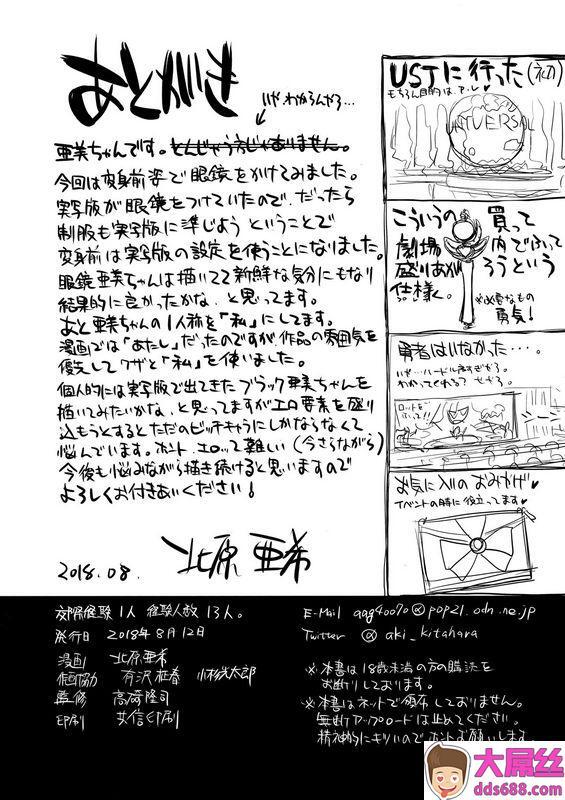 あとがき
いや、わかるんやろ…
亜美ちゃんです。とんじゃう方じゃありません。
今回は変身前姿で眼鏡をかけてみました。
実写版が眼鏡をつけていたので、だったら
制服も実写版に準じようということで
変身前は実写版の設定を使うことになりました。
眼鏡亜美ちゃんは描いてて新鮮な気分にもなり
結果的に良かったかな、と思ってます。
あと亜美ちゃんの1人称を「私」にしてます。
漫画では「あたし」だったのですが、作品の雰囲気を
優先してワザと「私」を使いました。
個人的には実写版で出てきたブラック亜美ちゃんを
描いてみたいかな、と思ってますがエロ要素を盛り
込もうとするとただのビッチキャラにしかならなくて
悩んでいます。ホント、エロって難しい(今さらながら)
今後も悩みながら描き続けると思いますので
よろしくお付きあいください!
2018.08.
北原亜希
USJに行った(初)
もちろん目的は
UNIVERSAL
こういうの
買って
劇場
内でふって
盛りあが
ろうという
仕様く。
※必要なもの
勇気!
勇者はいなかった…。
いや…ハードル高すぎやろ。
わかってくれる?
ロッドを
シーン
お気に入りのおみやげ♥
イベントの時に役立ってます♥
交際経験1人 経験人数13人。
発行日 2018年8月12日
漫画 北原亜希
企画協力 有沢 小林洋太郎
監修 高崎隆司
印刷 共信印刷
E-Mail aqg40070@pop21.odn.ne.jp
Twitter @aki_kitahara
※本書は18歳未満の方の購読を
お断りしております。
※本書はネットで頒布しておりません。
無断アップロードは止めてください。
精神的にキツいのでホントお願いします。
大屌丝
dds688.com